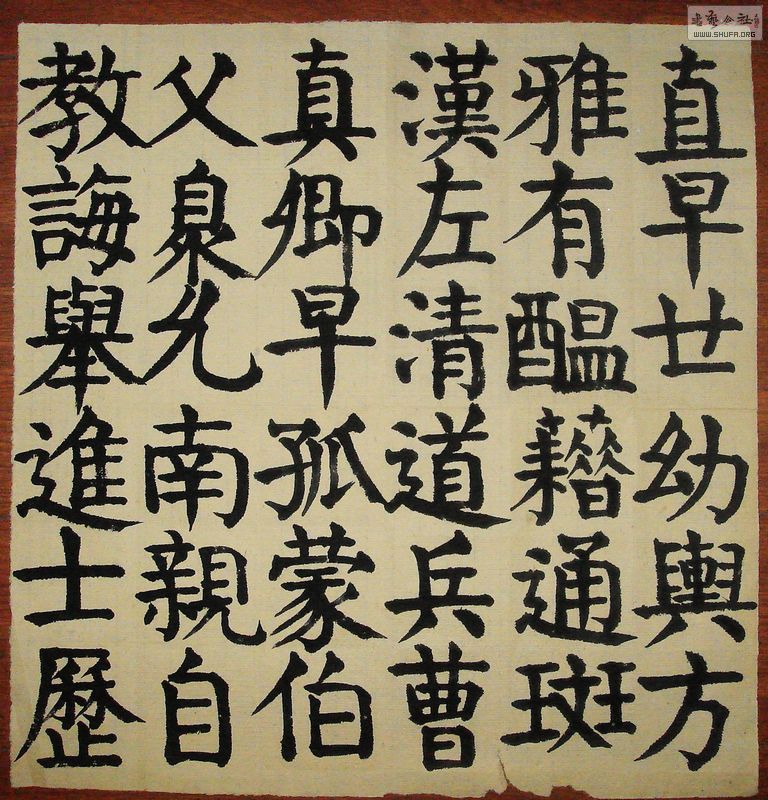 直早廿幼輿方
雅有醞藉通班
漢左清道兵曹
真卿早孤蒙伯
父泉允南親自
教誨舉進士歷
WWW.SHUFA.ORG